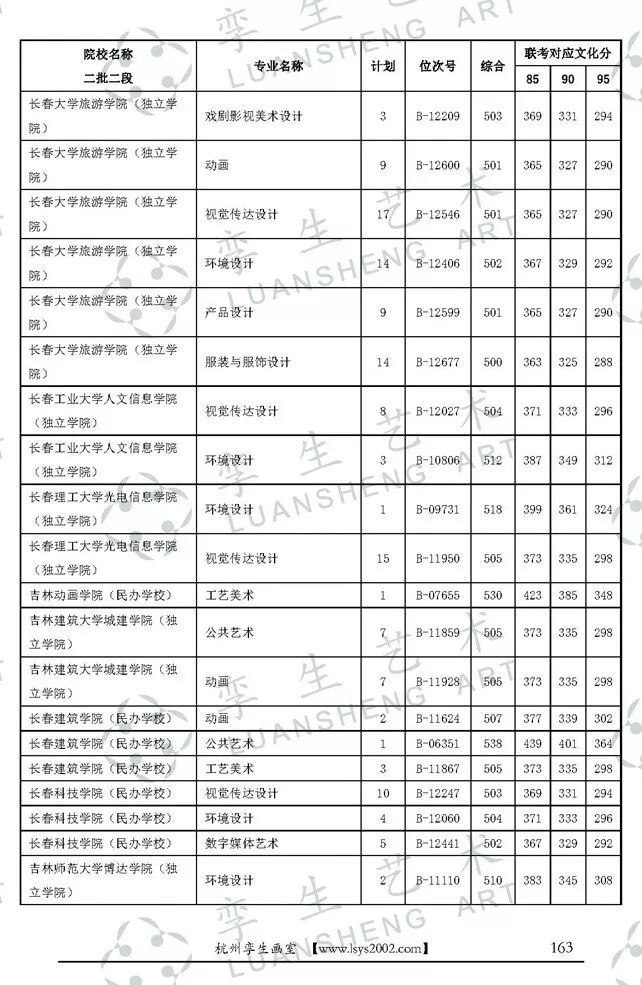 院校名称
二批二段
专业名称 计划 位次号 综合 联考对应文化分
85 90 95
长春大学旅游学院（独立学
院） 戏剧影视美术设计 3 B-12209 503 369 331 294
长春大学旅游学院（独立学
院） 动画 9 B-12600 501 365 327 290
长春大学旅游学院（独立学
院） 视觉传达设计 17 B-12546 501 365 327 290
长春大学旅游学院（独立学
院） 环境设计 14 B-12406 502 367 329 292
长春大学旅游学院（独立学
院） 产品设计 9 B-12599 501 365 327 290
长春大学旅游学院（独立学
院） 服装与服饰设计 14 B-12677 500 363 325 288
长春工业大学人文信息学院
（独立学院） 视觉传达设计 8 B-12027 504 371 333 296
长春工业大学人文信息学院
（独立学院） 环境设计 3 B-10806 512 387 349 312
长春理工大学光电信息学院
（独立学院） 环境设计 1 B-09731 518 399 361 324
长春理工大学光电信息学院
（独立学院） 视觉传达设计 15 B-11950 505 373 335 298
吉林动画学院（民办学校） 工艺美术 1 B-07655 530 423 385 348
吉林建筑大学城建学院（独
立学院） 公共艺术 7 B-11859 505 373 335 298
吉林建筑大学城建学院（独
立学院） 动画 7 B-11928 505 373 335 298
长春建筑学院（民办学校） 动画 2 B-11624 507 377 339 302
长春建筑学院（民办学校） 公共艺术 1 B-06351 538 439 401 364
长春建筑学院（民办学校） 工艺美术 3 B-11867 505 373 335 298
长春科技学院（民办学校） 视觉传达设计 10 B-12247 503 369 331 294
长春科技学院（民办学校） 环境设计 4 B-12060 504 371 333 296
长春科技学院（民办学校） 数字媒体艺术 5 B-12441 502 367 329 292
吉林师范大学博达学院（独
立学院） 环境设计 2 B-11110 510 383 345 308
杭州孪生画室 【www.lsys2002.com】 163
孪生艺术
LUANSHENG ART
孪生艺术
LUANSHENG ART
孪生艺术
LUANSHENG ART
孪生艺术
LUANSHENG ART
孪生艺术
LUANSHENG ART